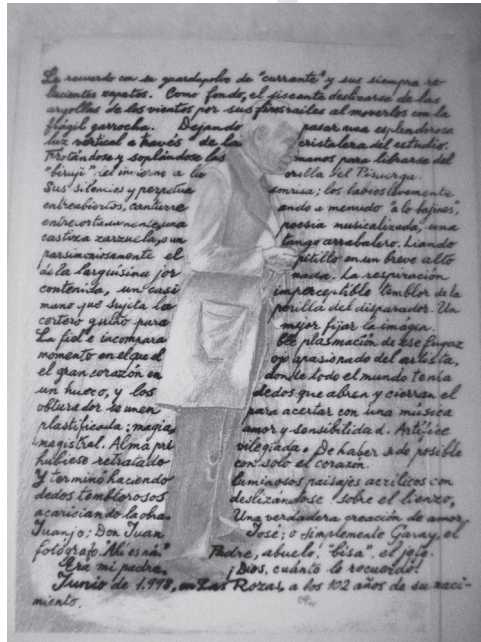 Le recuerdo con su guardapolvo de "currante" y sus siempre re-
lucientes zapatos. Como fondo, el siseante deslizarse de las
argollas de los vientos por sus finos railes al moverlos con la
frágil garrocha. Dejando pasar una esplendorosa
luz vertical a través de la cristalera del estudio.
Frotándose y soplándose las manos para librarse del
"biruji" del invierno a la orilla del Pisuerga.
Sus silencios y perpetua sonrisa; los labios levemente
entreabiertos, canturreando a menudo "a lo bajines",
entrecortadamente, una poesia musicalizada, una
castiza zarzuela, o un tango arrabalero. Liando
parsimoniosamente el pitillo en un breve alto
de la larguísima jornada. La respiración
contenida, un casi imperceptible temblor de la
mano que sujeta la perilla del disparador. Un
certero guiño para mejor fijar la imagen.
La fiel e incomparable plasmación de ese fugaz
momento en el que el ojo apasionado del artista,
el gran corazón en donde todo el mundo tenía
un hueco, y los dedos que abren y cierran el
obturador se unen para acertar con una música
plastificada: magia, amor y sensibilidad. Artífice
magistral. Alma privilegiada. De haber sido posible
hubiese retratado con solo el corazón.
Y termino haciendo luminosos paisajes acrílicos con
dedos temblorosos deslizándose sobre el lienzo,
acariciando la obra. Una verdadera creación de amor.
Juanjo; Don Juan José; o simplemente Garay, el
fotógrafo. Padre, abuelo, "bisa", el jefe.
Era mi padre. ¡Dios, cuánto le recuerdo!
Junio de 1.998, en Las Rozas, a los 102 años de su naci-
miento.